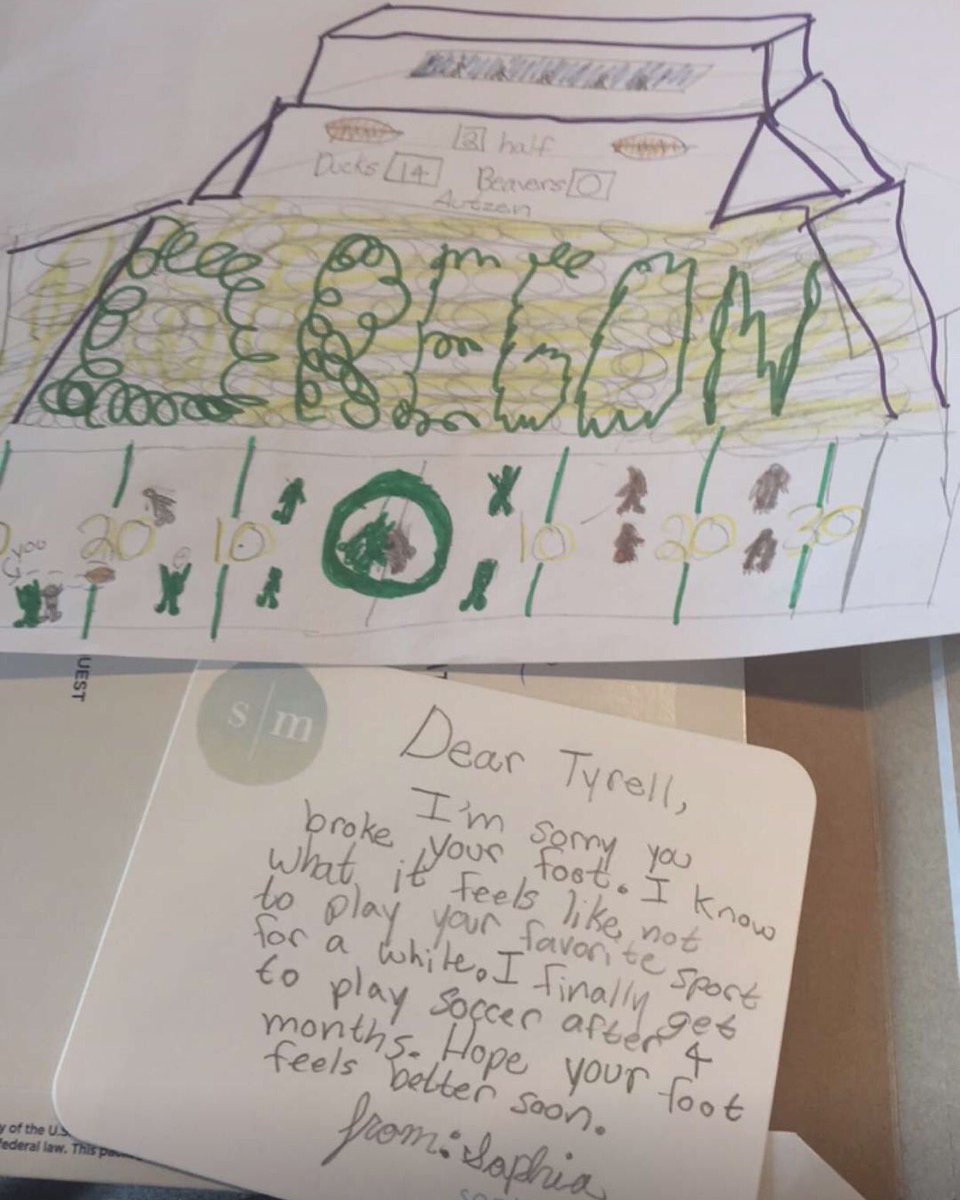 2 half
Ducks 14 Beavers 0
Autzen
OREGON
you
20 10 10 20 30
UEST
s/m
Dear Tyrell,
I'm sorry you
broke your foot. I know
what it feels like not
to play your favorite sport
for a while. I finally get
to play soccer after 4
months. Hope your foot
feels better soon.
from: Sophia
y of the U.S.
ederal law. This